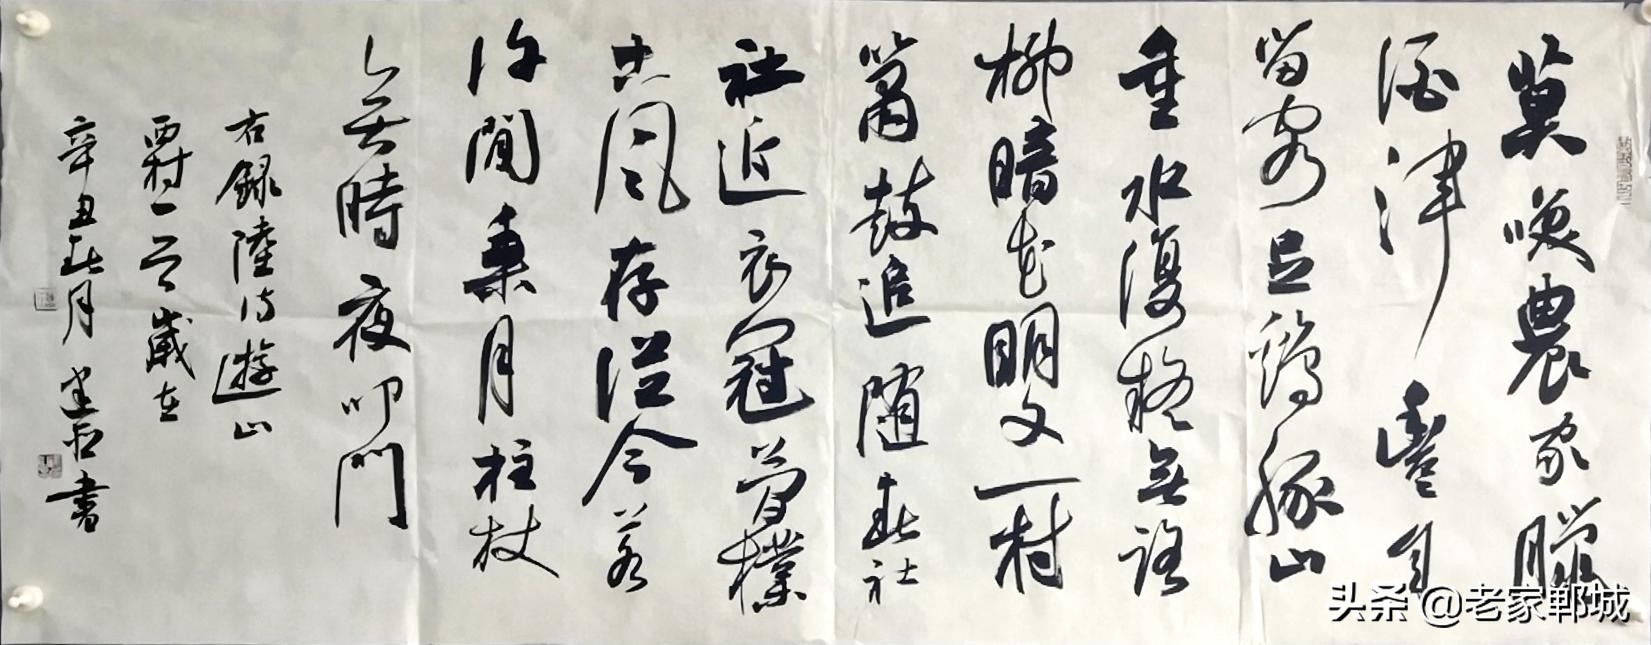 莫咲農家臘
酒渾豐年
留客足鷄豚山
重水復疑無路
柳暗花明又一村
簫鼓追随春社
社近衣冠簡樸
古風存從今若
許閒乘月柱杖
無時夜叩門
右録陸詩遊山
西村一首歲在
辛丑春月書
头条 @老家郸城